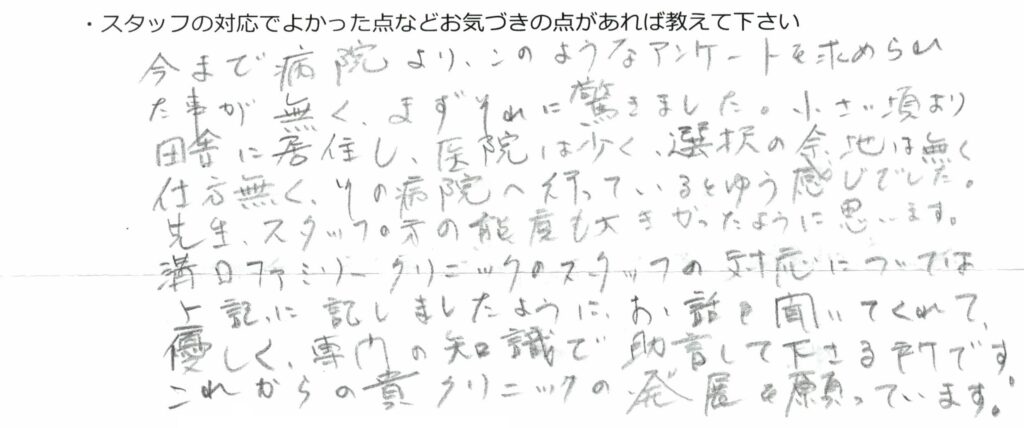 ・スタッフの対応でよかった点などお気づきの点があれば教えて下さい
今まで病院より、このようなアンケートを求められ
た事が無く、まずそれに驚きました。小さい頃より
田舎に居住し、医院は少く、選択の余地は無く
仕方無く、その病院へ行っているとゆう感じでした。
先生、スタッフの方の態度も大きかったように思います。
溝口ファミリークリニックのスタッフの対応については
上記に記しましたように、お話を聞いてくれて、
優しく、専門の知識で助言して下さる所です
これからの貴クリニックの発展を願っています。